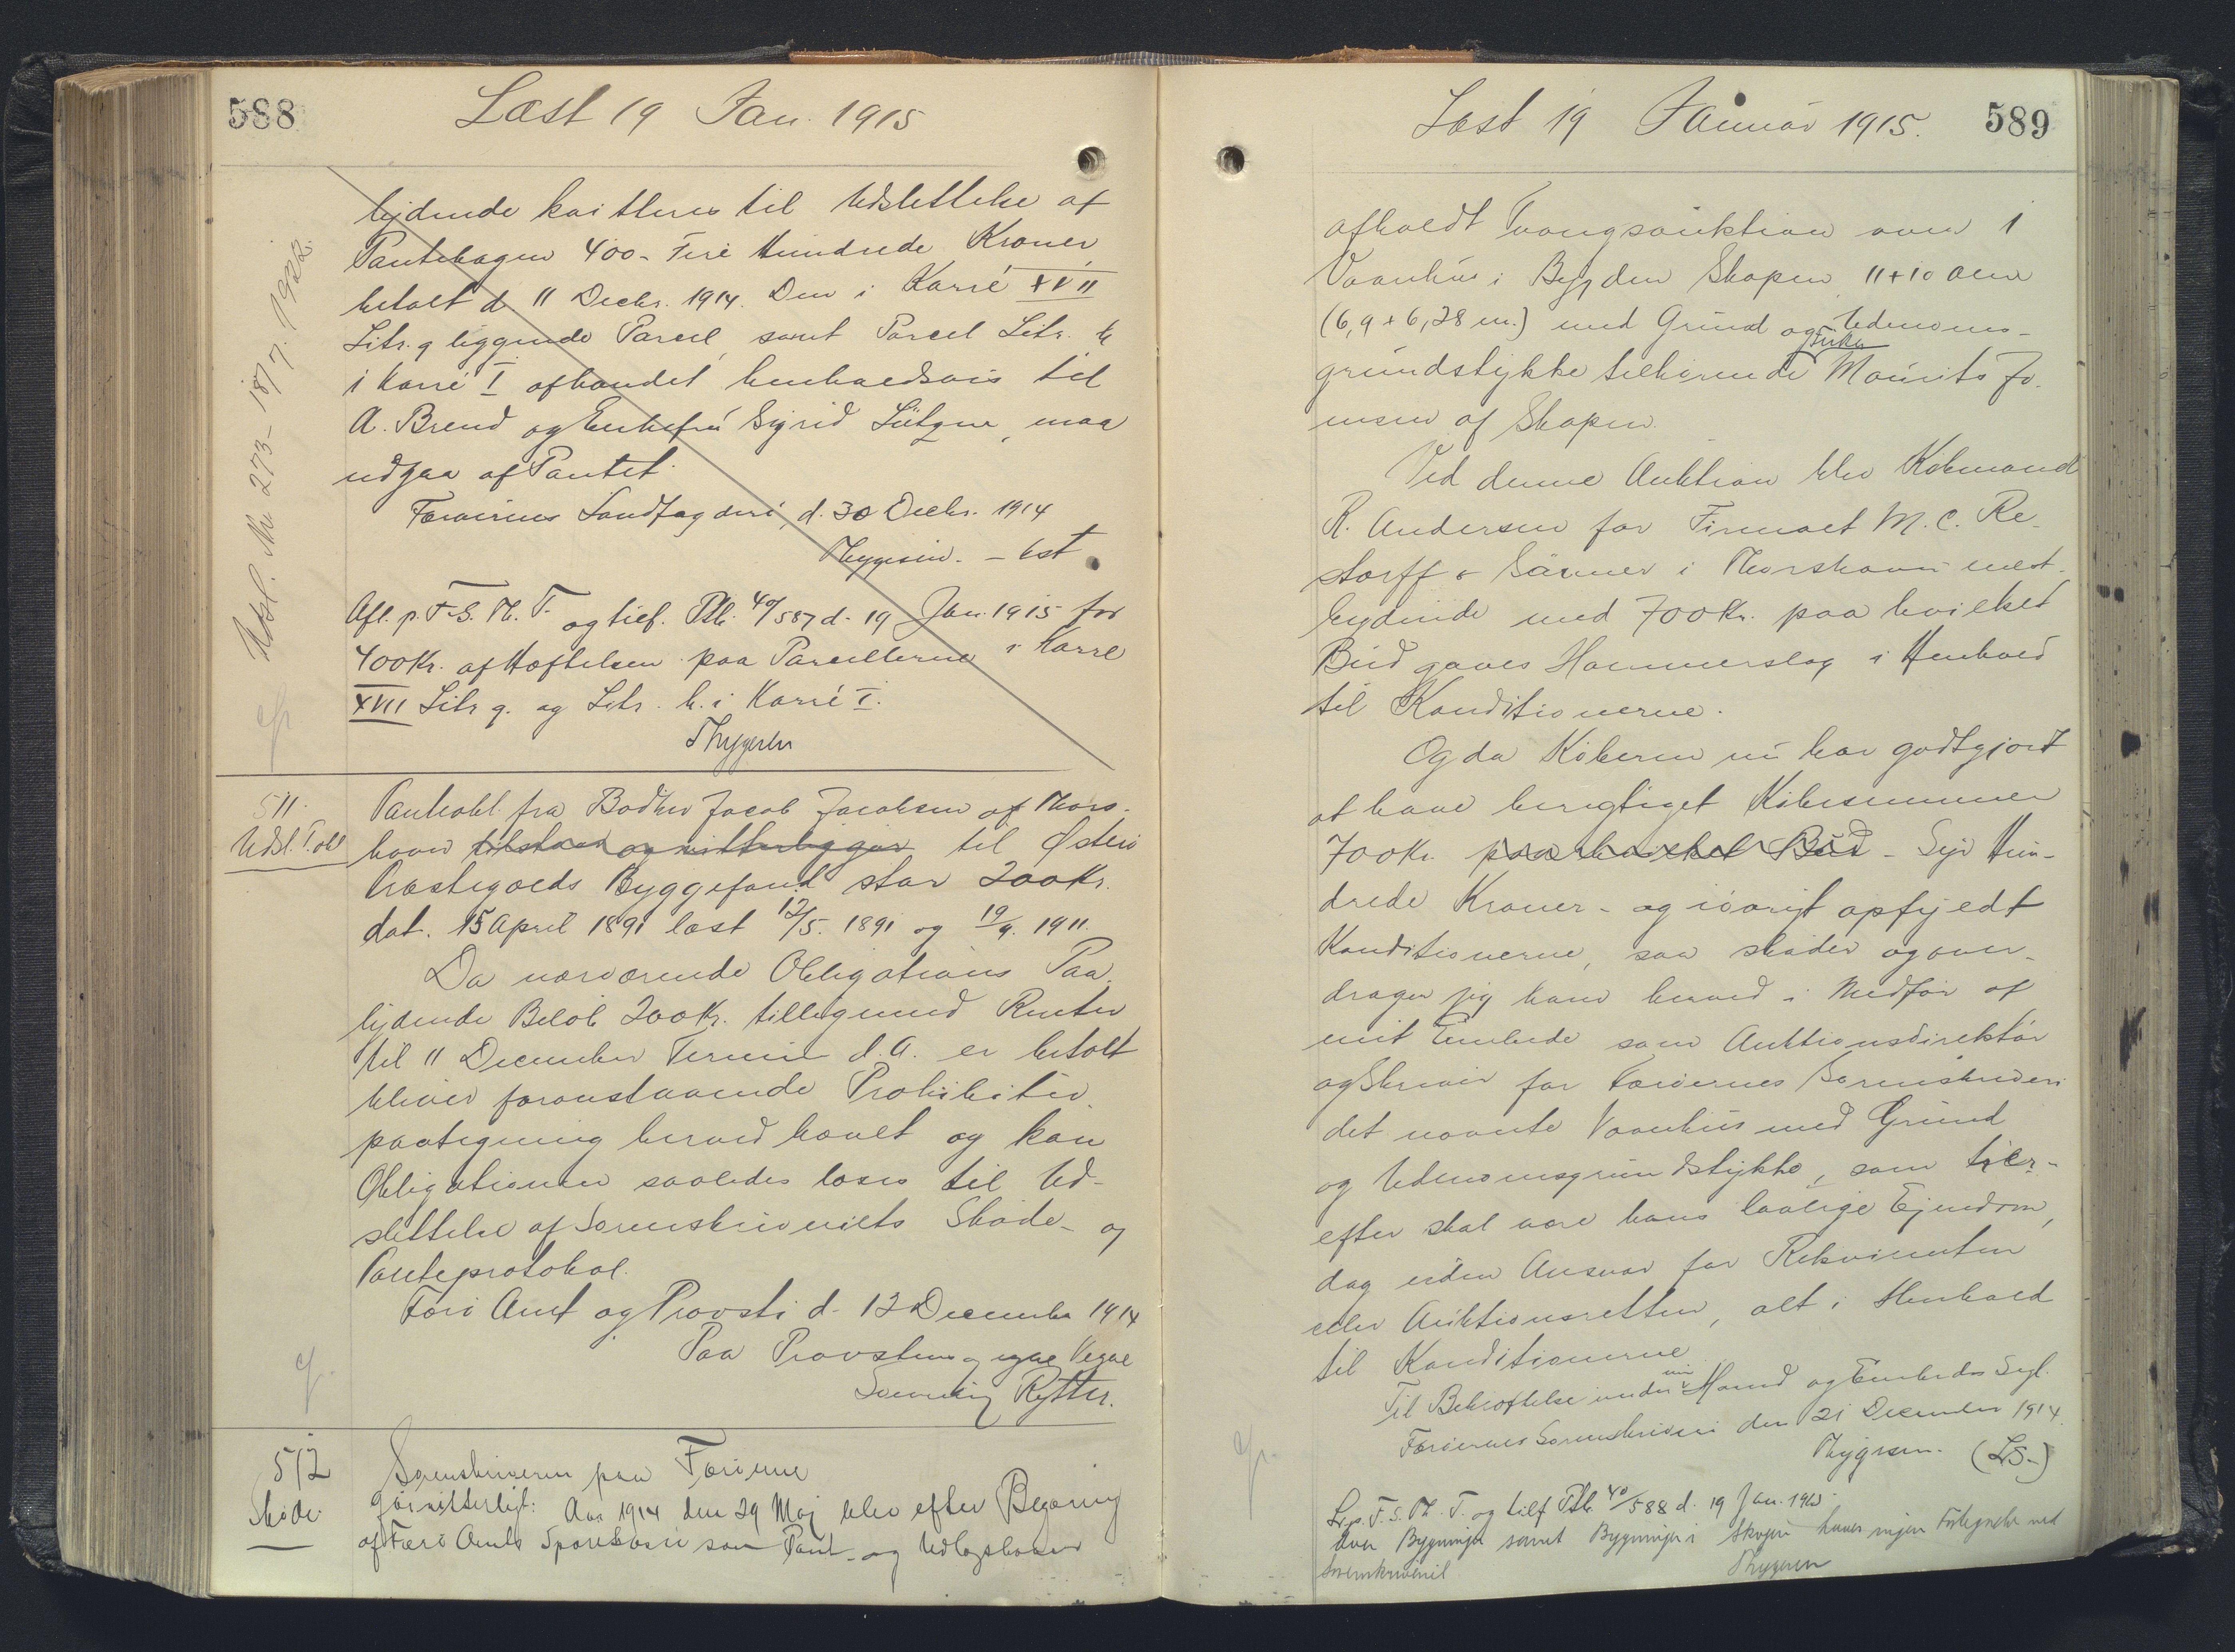 588
Læst 19 Jan. 1915
Udsl. No 273 - 18/7. 1922.
lydende kvitteres til Udslettelse af
Pantebogen 400 - Fire Hundrede Kroner
betalt d. 11 Decbr. 1914. Den i Karré XVII
Litr. q liggende Parcel, samt Parcel Litr. h
i Karré I afhændet henholdsvis til
A. Brend og Enkefru Sigrid Lützen, maa
udgaa af Pantet.
Færøernes Landfogderi, d. 30 Decbr. 1914
Thygesen. - kst
Afl. p. F. S. Th. T. og tilf. Ptb. 40/587 d. 19 Jan. 1915 for
400 Kr. af Hæftelsen paa Parcellerne i Karré
XVII Litr q. og Litr. h. i Karré I.
Thygesen
511.
Udsl. P. obl
Pantobl. fra Bødker Jacob Jacobsen af Thors-
havn tilstaar og vitterliggør til Østerø
Præstegælds Byggefond stor 200 Kr.
dat. 15 April 1891 læst 12/5. 1891 og 19/9. 1911.
Da nærværende Obligations Paa-
lydende Beløb 200 Kr. tilligemed Renter
til 11 December Termin d. A. er betalt
bliver foranstaaende Prohibitiv-
paategning herved hævet og kan
Obligationen saaledes læses til Ud-
slettelse af Sorenskriveriets Skøde- og
Panteprotokol.
Færø Amt og Provsti d. 12 December 1914
Paa Provstens og egne Vegne
Svenning Rytter.
512
Skøde
Sorenskriveren paa Færøerne
gør vitterligt: Aar 1914 den 29 Maj blev efter Begæring
af Færø Amts Sparekasse som Pant- og Udlægshaver
589
Læst 19 Januar 1915.
afholdt Tvangsauktion over 1
Vaanhus i Bygden Skopen, 11 + 10 Alen
(6,9 + 6,28 m.) med Grund og Udenoms-
grundstykke tilhørende Enke Maurits Jo-
ensen af Skopen.
Ved denne Auktion blev Købmand
R. Andersen for Firmaet M. C. Re-
storff & Sønner i Thorshavn mest-
bydende med 700 Kr. paa hvilket
Bud gaves Hammerslag i Henhold
til Konditionerne.
Og da Køberen nu har godtgjort
at have berigtiget Købesummen
700 Kr. paa hvilket Bud - Syv Hun-
drede Kroner - og iøvrigt opfyldt
Konditionerne, saa skøder og over-
drager jeg ham herved i Medfør af
mit Embede som Auktionsdirektør
og Skriver for Færøernes Sorenskriveri
det nævnte Vaanhus med Grund
og Udenomsgrundstykke, som her-
efter skal være hans lovlige Ejendom,
dog uden Ansvar for Rekvirenten
eller Auktionsretten, alt i Henhold
til Konditionerne
Til Bekræftelse under min Haand og Embeds Segl.
Færøernes Sorenskriveri den 21 December 1914.
Thygesen. (LS.)
L. p. F. S. Th. T. og tilf. Ptb. 40/588 d. 19 Jan. 1915.
Over Bygninger samt Bygninger i Skopen haves ingen Fortegnelse ved
Sorenskriveriet
Thygesen